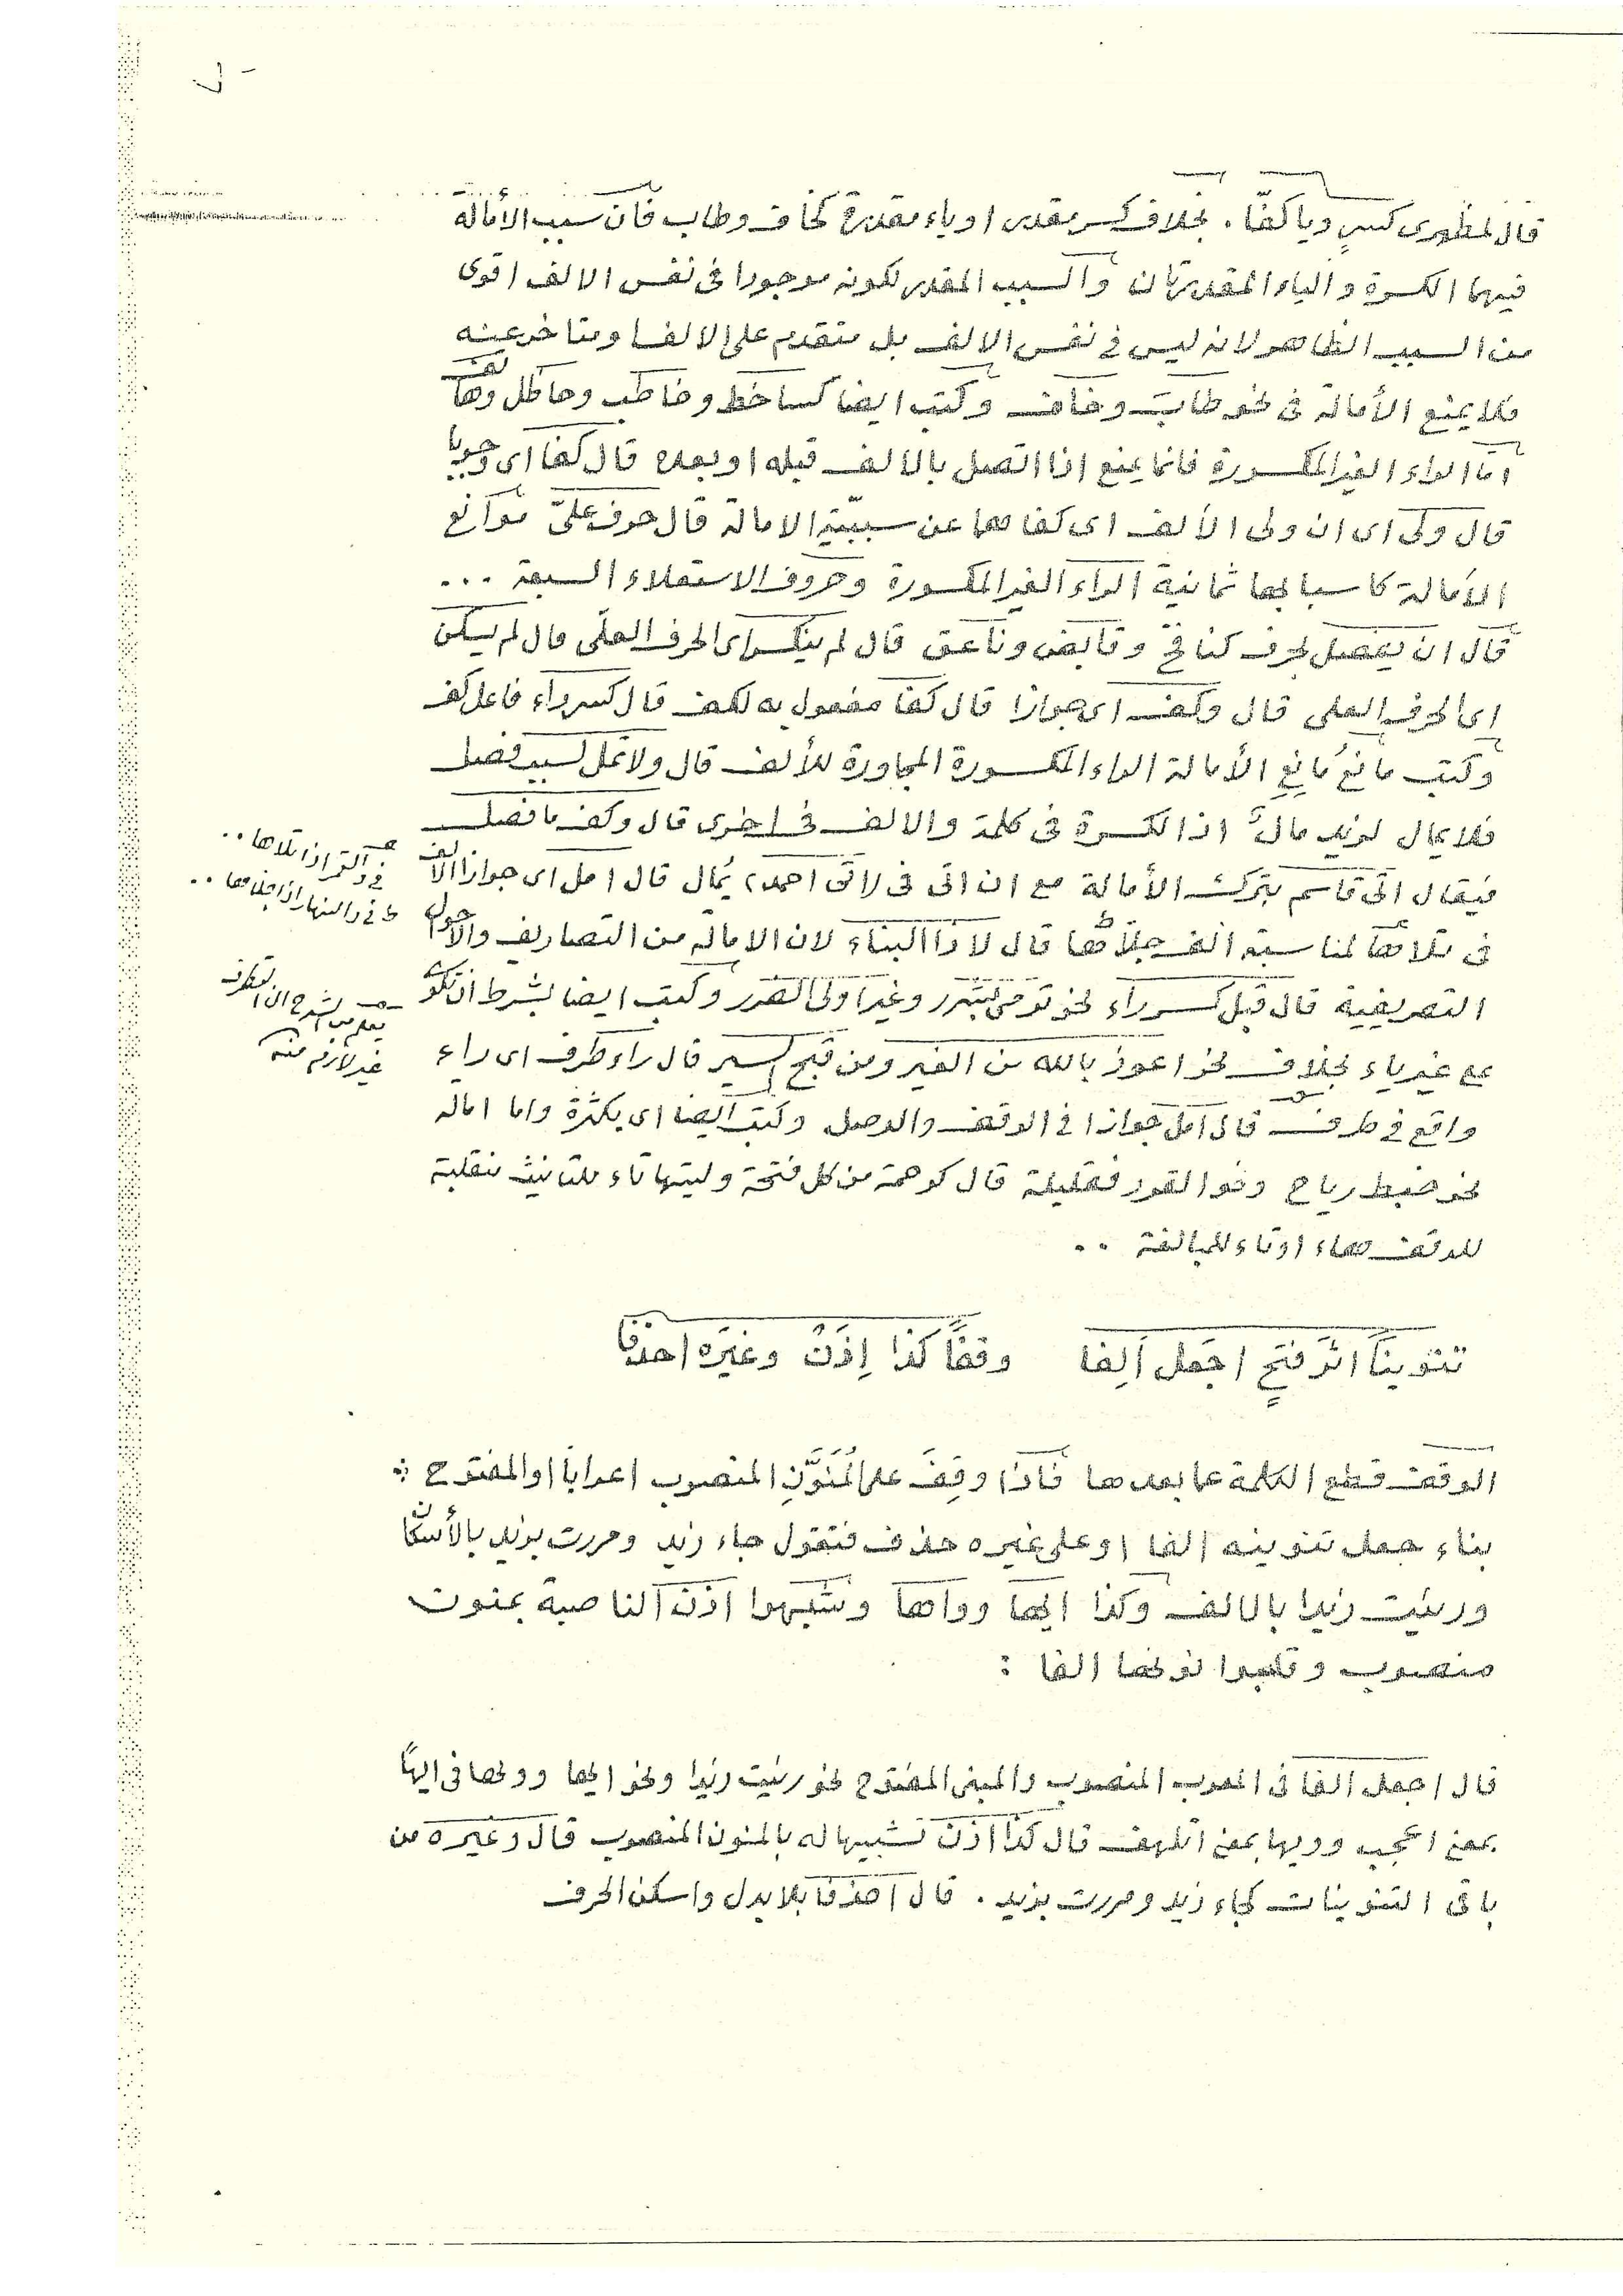 قال لمظهرى كسرٍ وياكفّا . بخلاف كسر مقدر او ياء مقدرة كخاف وطاب فان سبب الأمالة
فيهما الكسرة والياء المقدرتان والسبب المقدر لكونه موجودا فى نفس الالف اقوى
من السبب الظاهر لانه ليس فى نفس الالف بل متقدم على الالف او متاخر عنه
فلا يمنع الأمالة فى نحو طاب وخاف وكتب ايضا كساخط وخاطب وحاظل
اما الراء الغير المكسورة فانما يمنع اذا اتصل بالالف قبله او بعده قال كفا اى وجوبا
قال ولى اى ان ولى الألف اى كفاهما عن سببيّة الامالة قال حرف علىّ موانع
الأمالة كاسبابها ثمانية الراء الغير المكسورة وحروف الاستعلاء السبعة ...
قال ان يفصل بحرف كنافخ وقابض وناعق قال لم ينكسر اى الحرف العلى قال لم يسكن
اى الحرف العلى قال وكف اى جوازا قال كفا مفعول به لكف قال كسر راء فاعل كف
وكتب مانعُ مانعِ الأمالة الراء المكسورة المجاورة للألف قال ولا تمل لسبب فصل
فلا يمال لزيد مال اذ الكسرة فى كلمة والالف فى اخرى قال وكف ما فصل
فيقال اتى قاسم بترك الأمالة مع ان اتى فى اتى احمد يُمال قال امل اى جوازا الالف
فى تلاها لمناسبة الف جلاها قال لا ذا البناء لان الامالة من التصاريف والاحوال
التصريفية قال قبل كسر راء نحو ترمى بشرر وغير اولى الضرر وكتب ايضا بشرط ان تكون
مع غير ياء بخلاف نحو اعوذ بالله من الغير ومن قبح السير قال راء طرف اى راء
واقع فى طرف قال امل جوازا فى الوقف والوصل وكتب ايضا اى بكثرة واما امالة
نحو خبط رياح ونحو القور فقليلة قال كرحمة من كل فتحة وليتها تاء للتانيث منقلبة
للوقف هاء او تاء للمبالغة ..
فى والقمر اذا تلاها ..
فى والنهار اذا جلاها ..
يعلم من الشرح ان التطرف
غير لازم منه
تنوينًا اثر فتحٍ اجعل اَلِفا وقفًا كذا اِذَنْ وغيَره احذفا
الوقف قطع الكلمة عما بعدها فاذا وقِفَ على المُنَوَّنِ المنصوب اعرابا او المفتوح :
بناء جعل تنوينه الفا او على غيره حذف فتقول جاء زيد ومررت بزيد بالأسكان
ورئيت زيدا بالالف وكذا ايها وواها وشبهوا اذن الناصبة بمنون
منصوب وقلبوا نونها الفا :
قال اجعل الفا فى المعرب المنصوب والمبنى المفتوح نحو رئيت زيدا ونحو ايها وويها فى ايهًا
بمعنى اعجب وويها بمعنى اتلهف قال كذا اذن تشبيها له بالمنون المنصوب قال وغيره من
باقى التنوينات كجاء زيد ومررت بزيد . قال احذفا بلا بدل واسكن الحرف